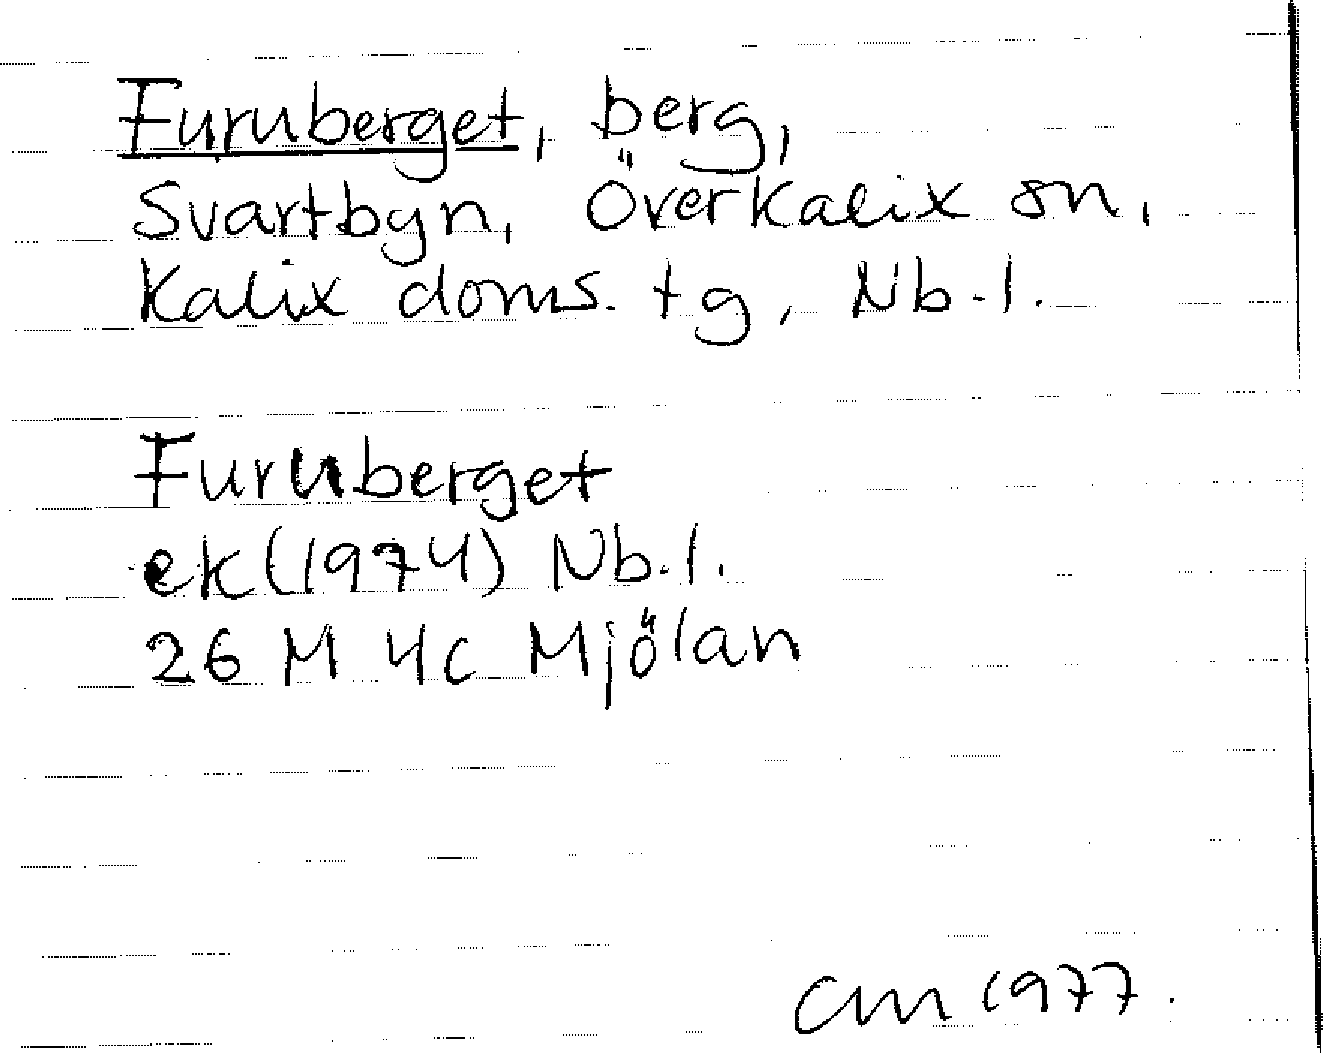 Furuberget, berg,
Svartbyn, Överkalix sn,
Kalix doms. tg, Nb.l.
Furuberget
ek (1974) Nb.l.
26 M 4c Mjölan
CM 1977.